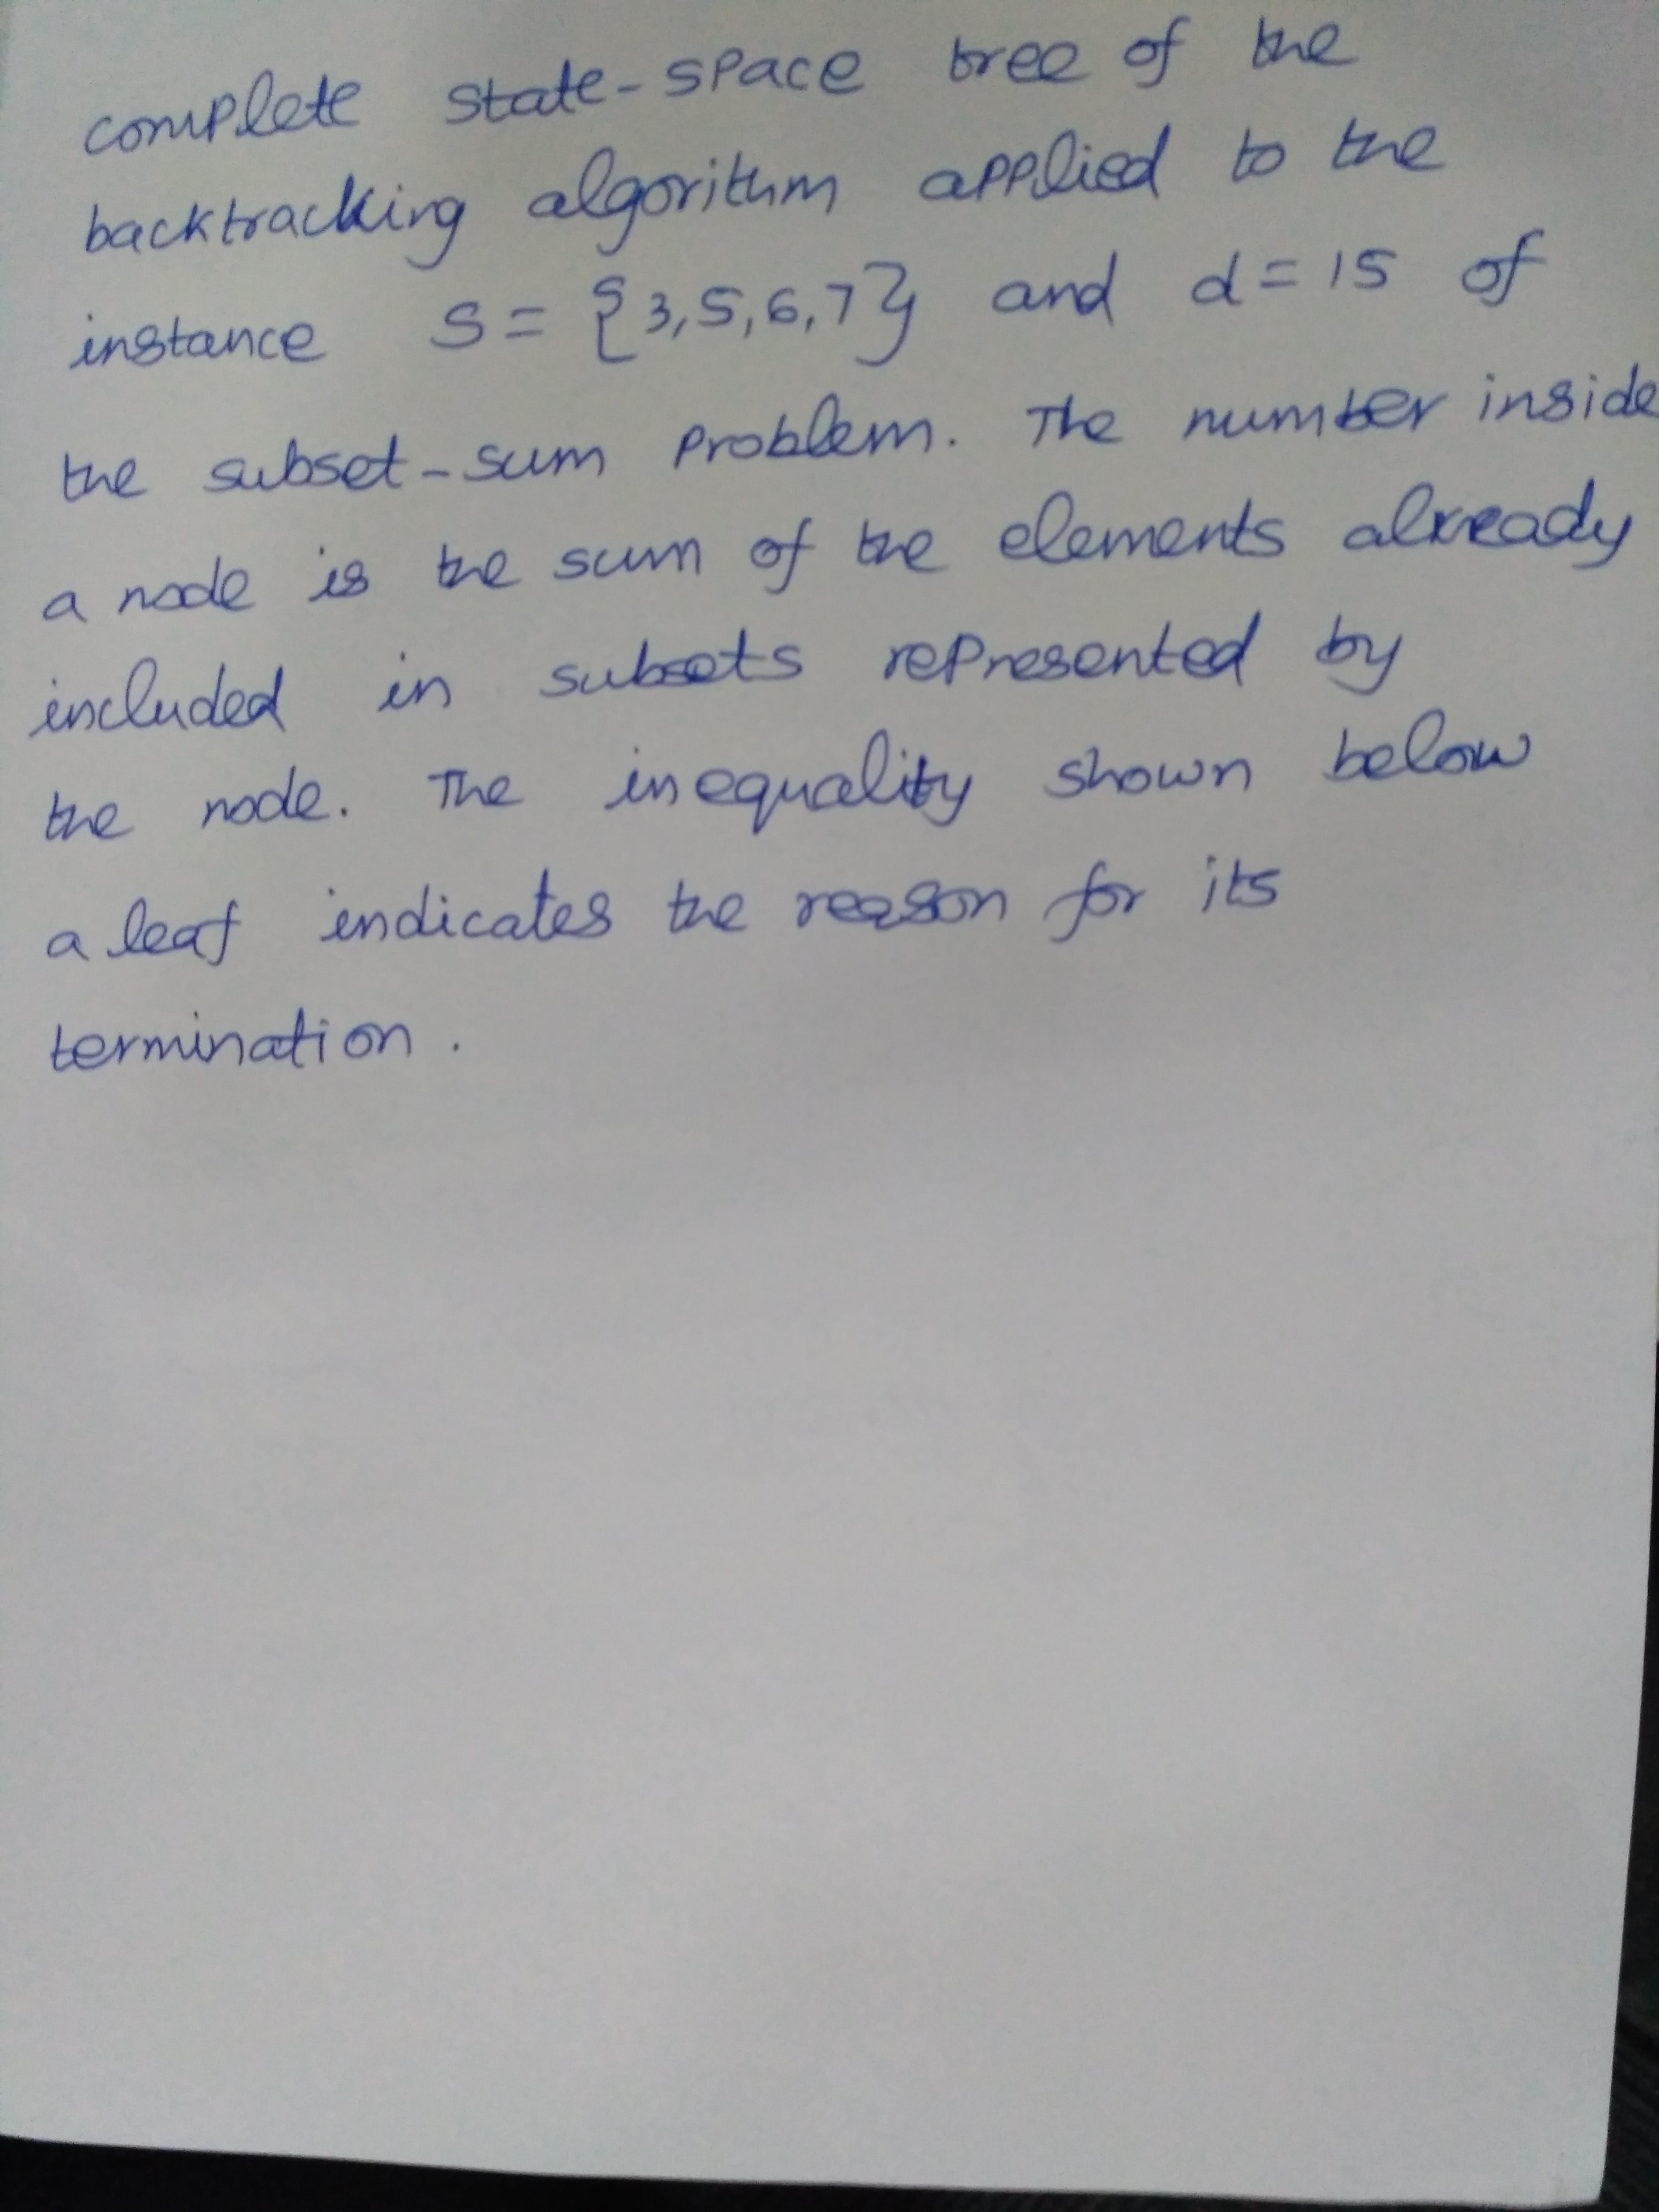 complete state-space tree of the
backtracking algorithm applied to the
instance S = {3,5,6,7} and d = 15 of
the subset-sum problem. The number inside
a node is the sum of the elements already
included in subsets represented by
the node. The inequality shown below
a leaf indicates the reason for its
termination.